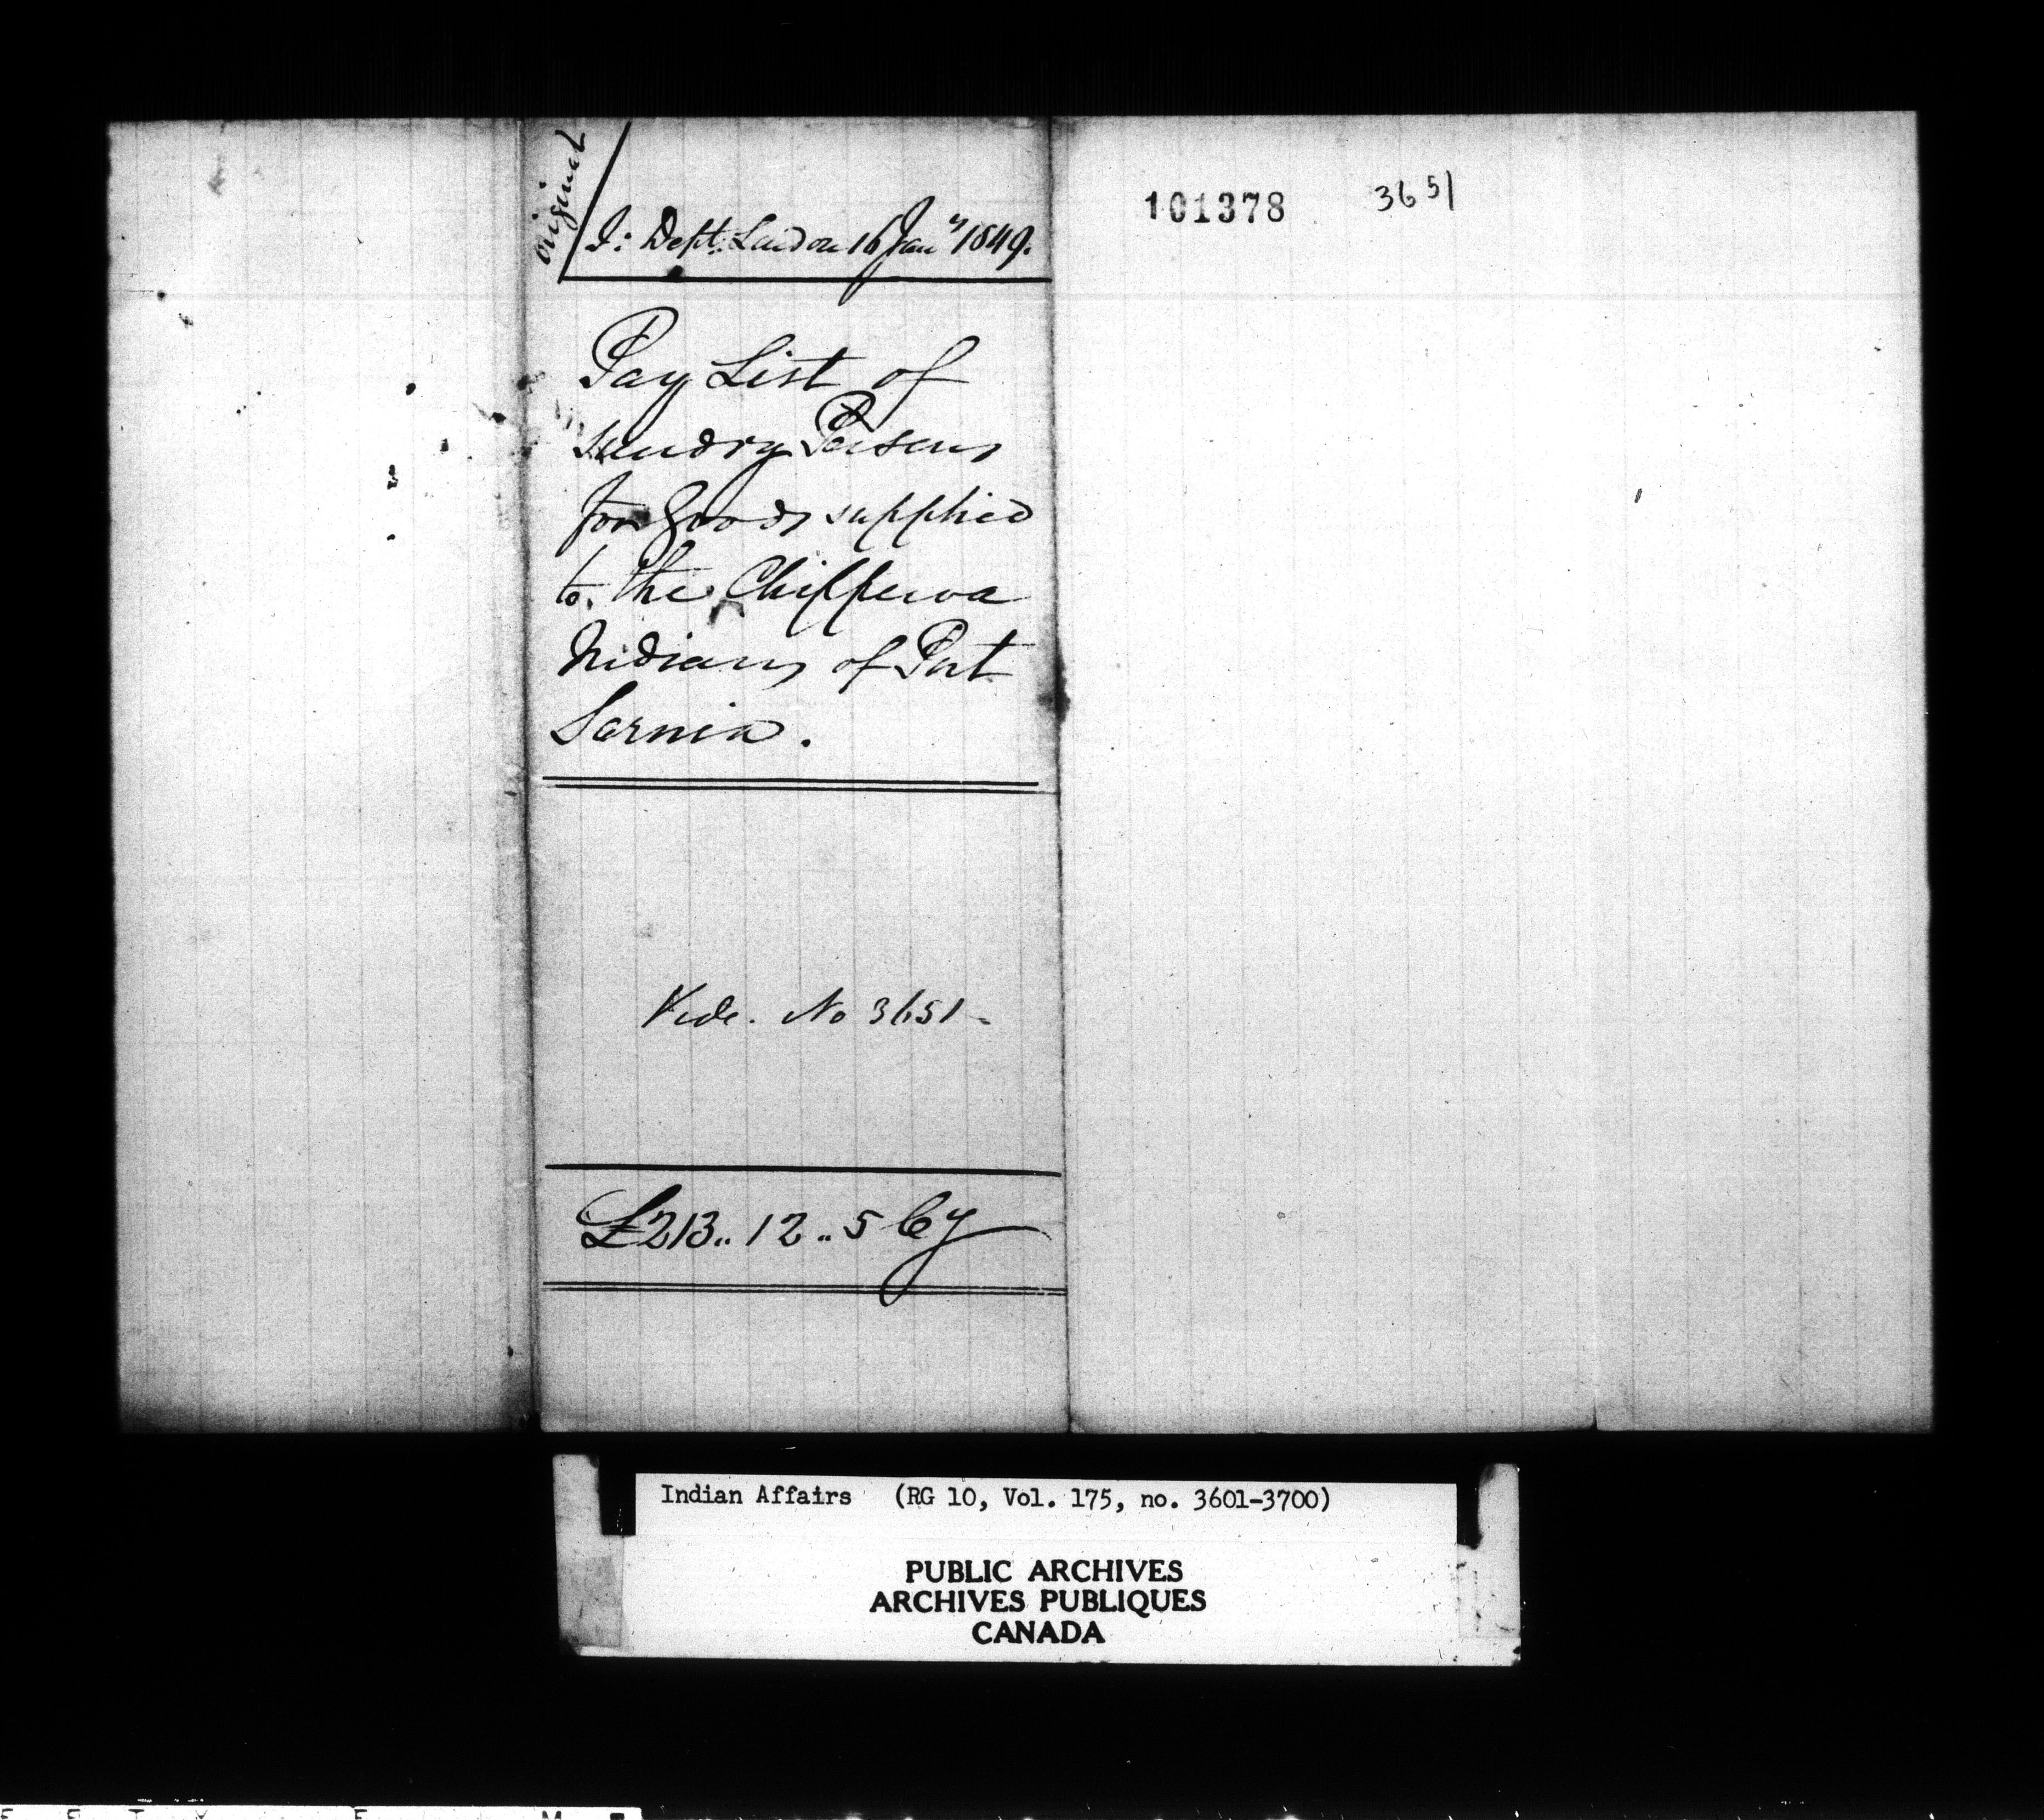 original
I: Dept. London 16 Jany 1849.
Pay List of
sundry Persons
for goods supplied
to the Chippewa
Indians of Port
Sarnia.
Vide. No 3651-
£213.. 12 .. 5 Cy
101378 3651
Indian Affairs (RG 10, Vol. 175, no. 3601-3700)
PUBLIC ARCHIVES
ARCHIVES PUBLIQUES
CANADA